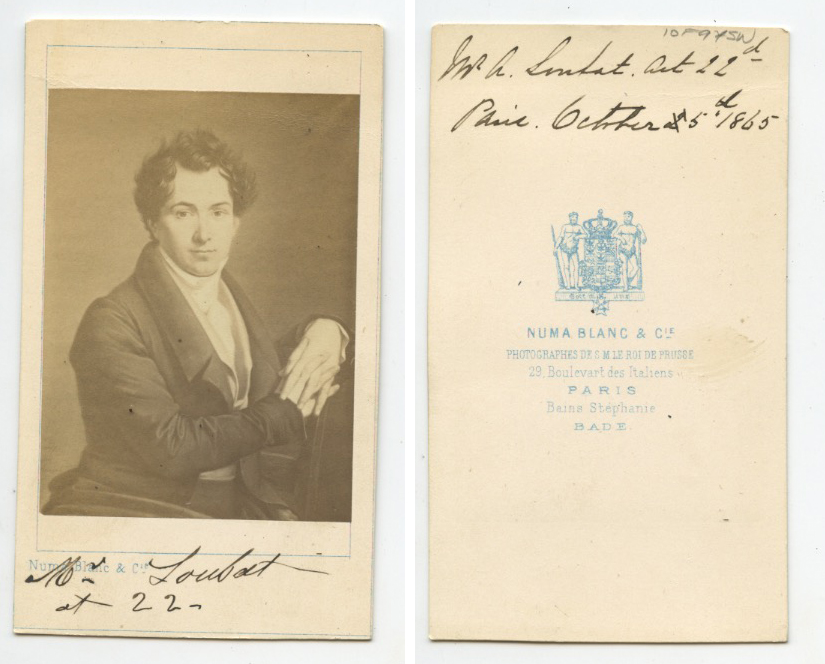 Numa Blanc & Cie
Mr Loubat
at 22
10F97SW
Mr A. Loubat. at 22d
Paris. October 5d 1865
NUMA BLANC & CIE
PHOTOGRAPHES DE S.M. LE ROI DE PRUSSE
29, Boulevart des Italiens
PARIS
Bains Stéphanie
BADE.